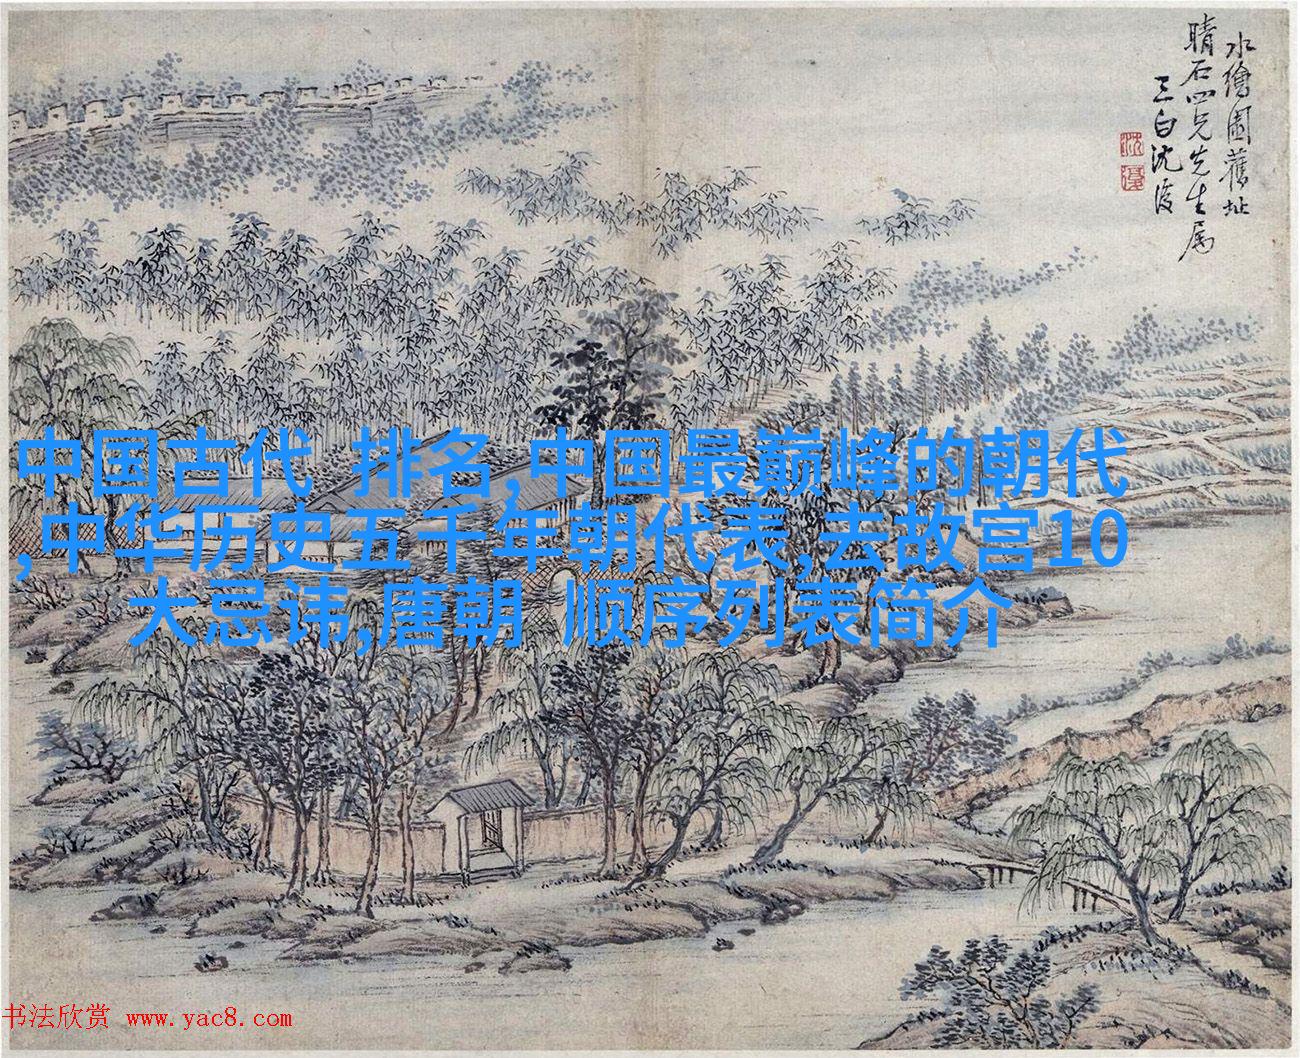 水繪園舊址
晴石四兄先生属
三白沈复
沈
復
中国古代 排名,中国最巅峰的朝代
,中华历史五千年朝代表,去故宫10
大忌讳,唐朝 顺序列表简介
书法欣赏 www.yac8.com